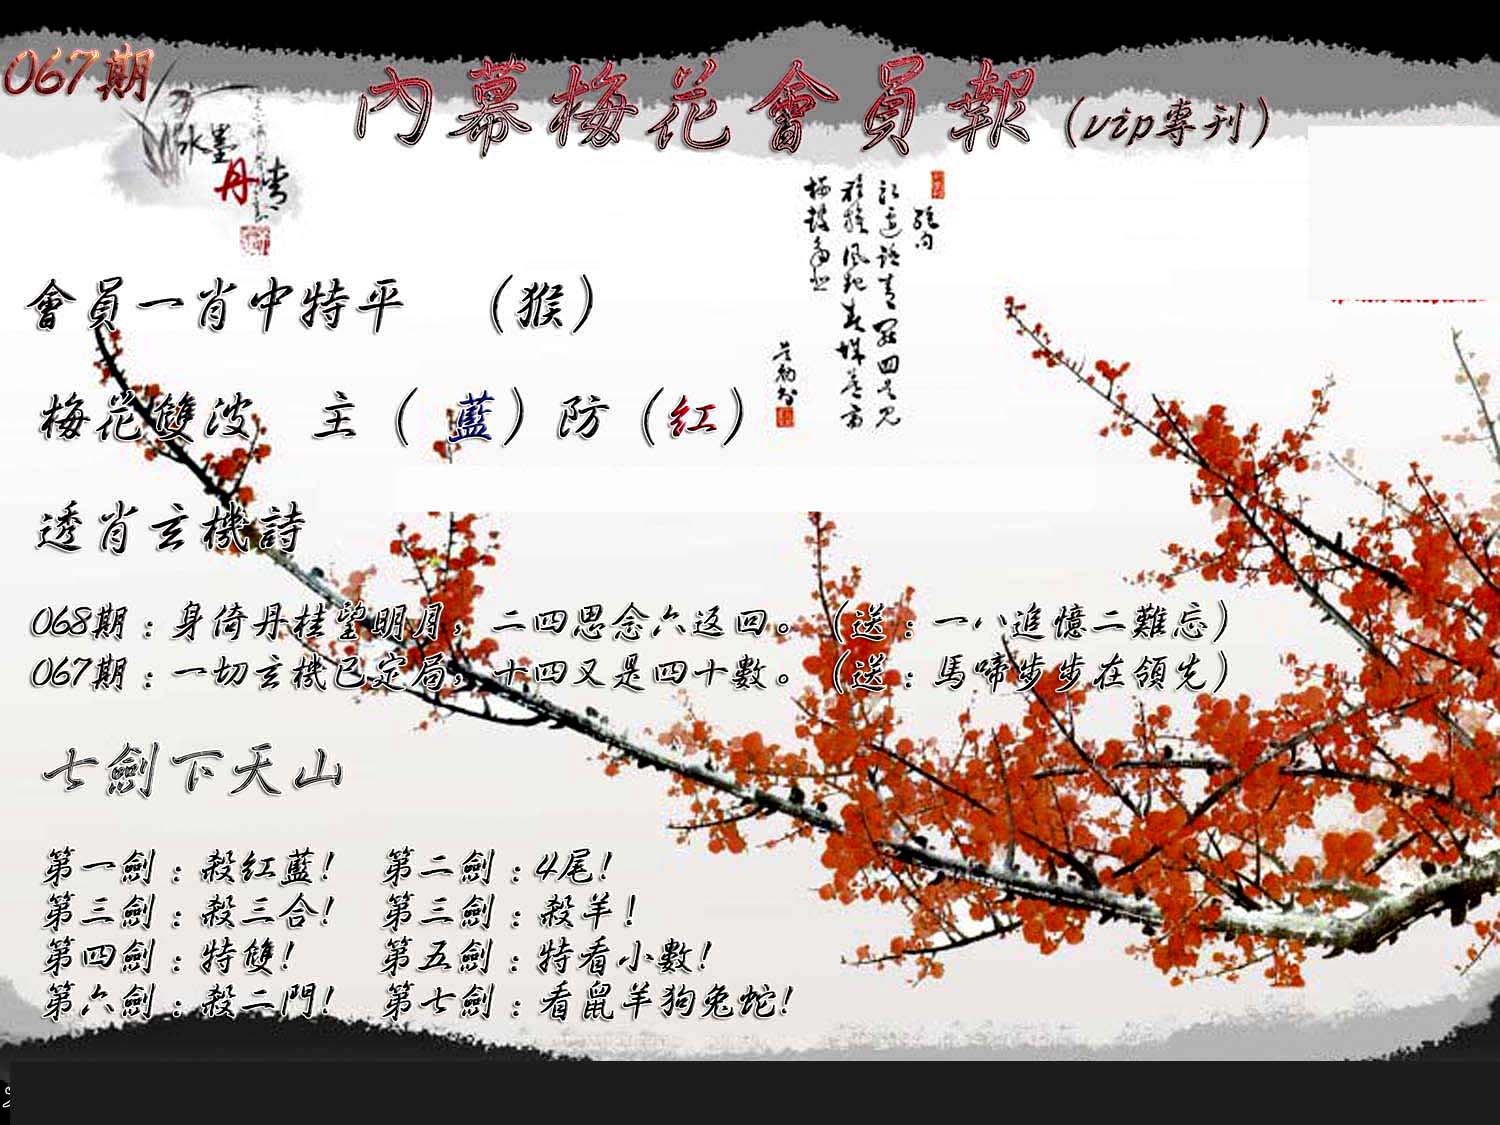 067期
內幕梅花會員報（vip專刊）
水墨
丹青
絕句
會員一肖中特平 （猴）
梅花雙波 主（ 藍）防（紅）
透肖玄機詩
068期：身倚丹桂望明月，二四思念六返回。（送：一八追憶二難忘）
067期：一切玄機已定局，十四又是四十數。（送：馬啼步步在領先）
七劍下天山
第一劍：殺紅藍! 第二劍：4尾!
第三劍：殺三合! 第三劍：殺羊!
第四劍：特雙! 第五劍：特看小數!
第六劍：殺二門! 第七劍：看鼠羊狗兔蛇!